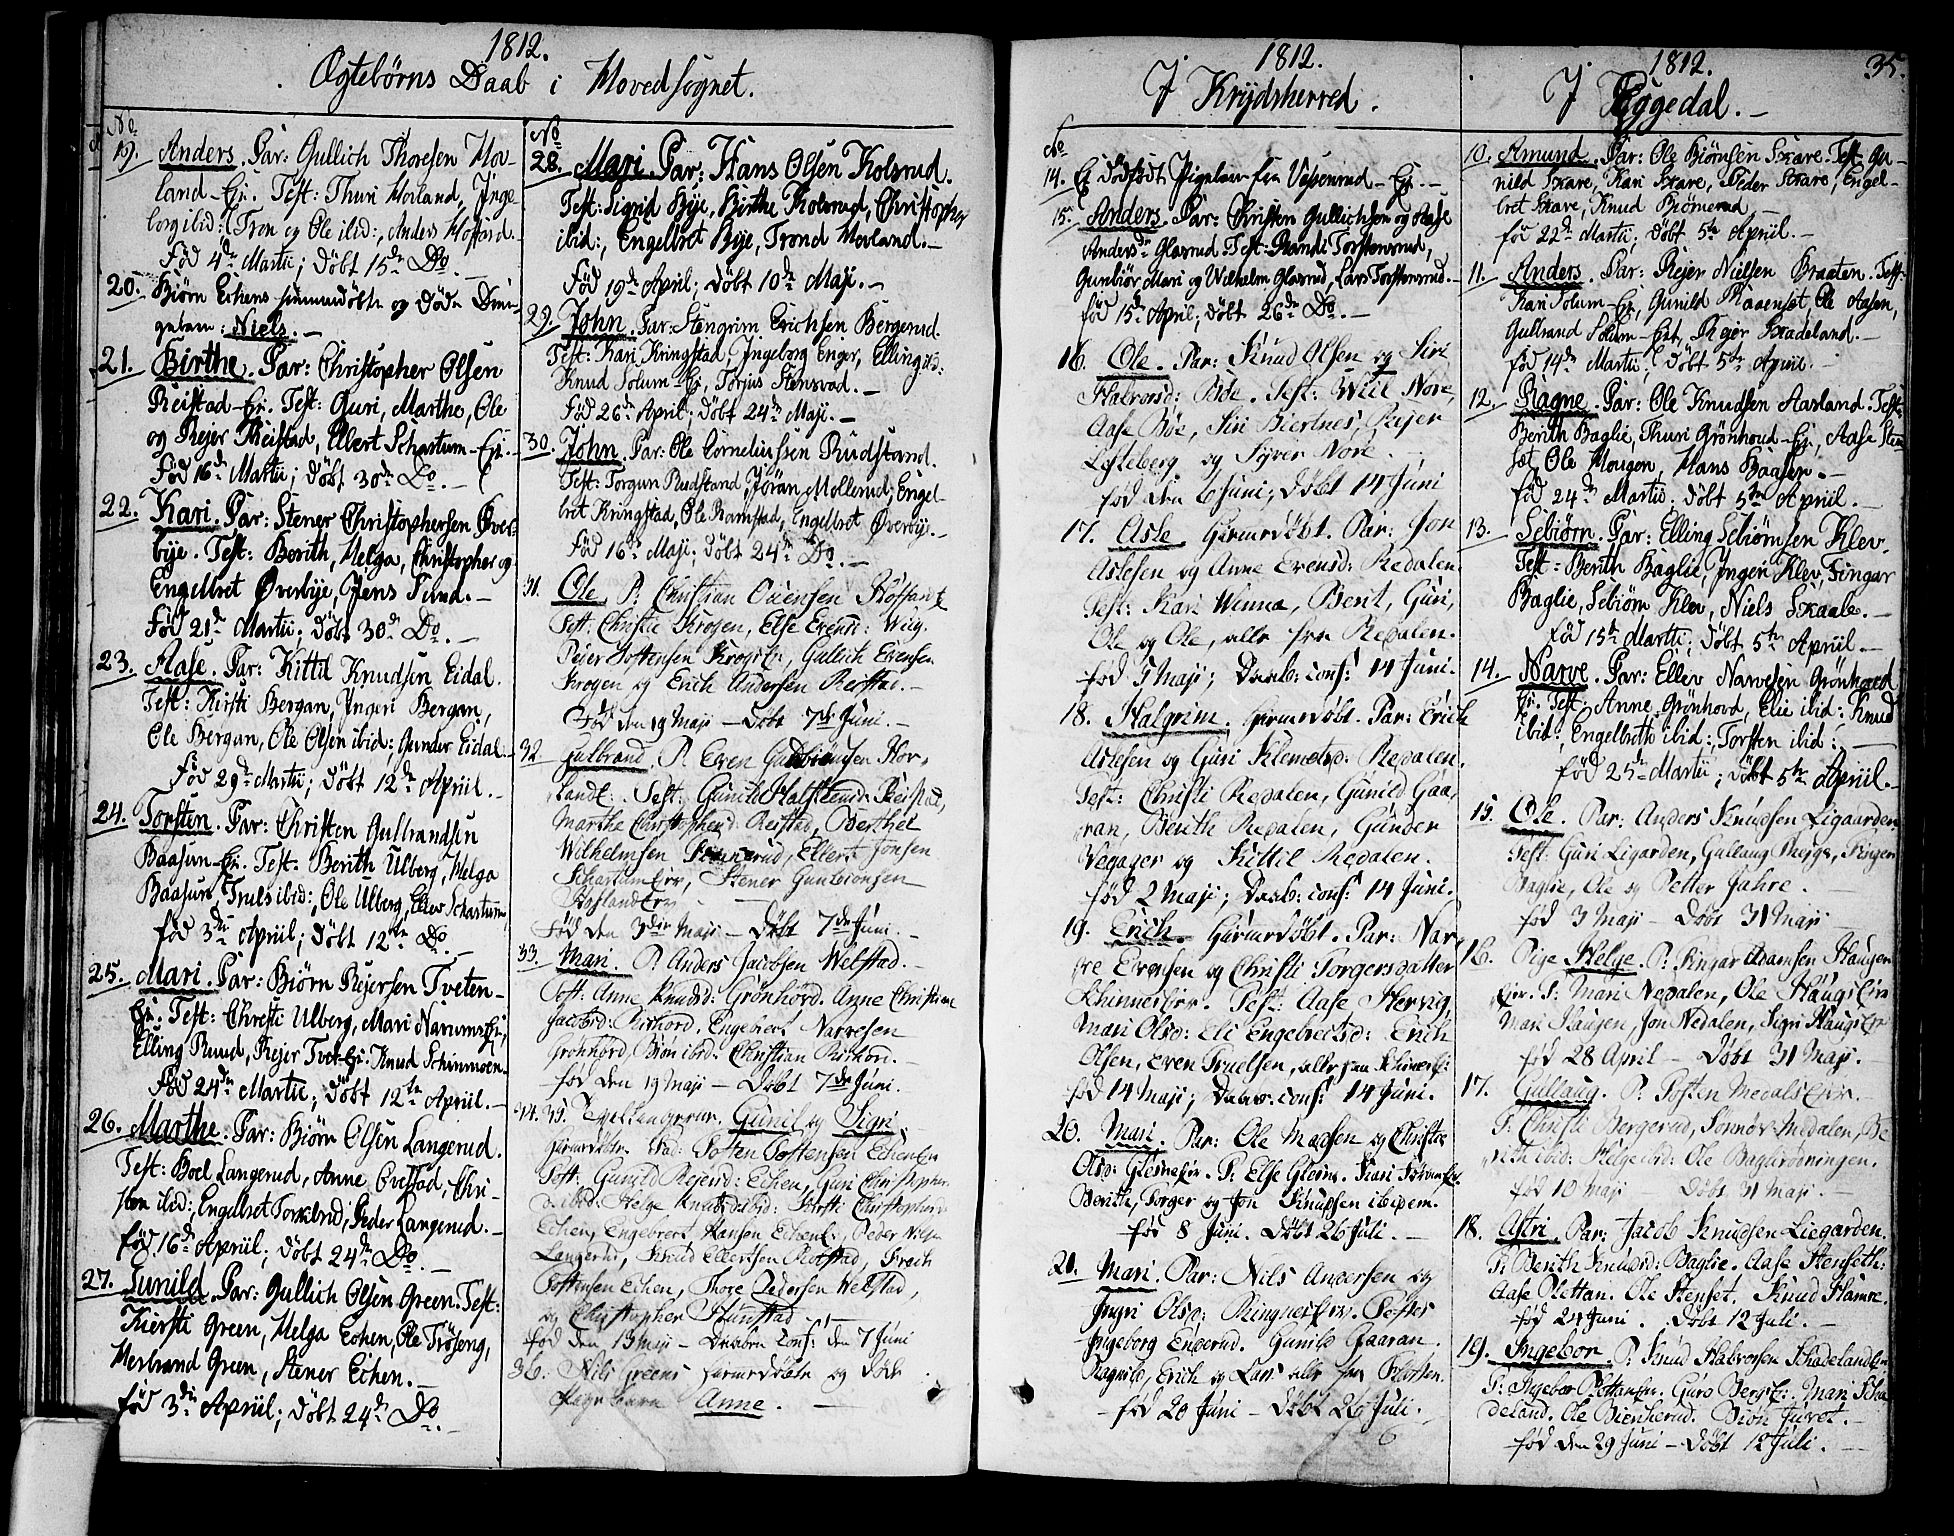 1812.
Ægtebørns Daab i Hovedsognet.
No
19. Anders. Par: Gullich Thoresen Hov-
land-Ejr. Test: Thuri Hovland, Inge-
borg ibid: Tron og Ole ibid:, Anders Hoffard.
Fød 4de Martii; døbt 15de Do. -
20. Biørn Echens hiemmedøbte og døde Dren-
gebarn: Niels. -
21. Birthe. Par: Christopher Olsen
Reistad-Ejr. Test: Guri, Marthe, Ole
og Rejer Reistad, Elbert Schartum-Ejr.
Fød 16de Martii; døbt 30de Do. -
22. Kari. Par: Stener Christophersen Øver-
bye. Test: Berith, Helga, Christopher og
Engelbret Øverbye, Jens
Fød 21de Martii; døbt 30de Do. -
23. Aase. Par: Kittil Knudsen Eidal.
Test: Kirsti Bergan, Ingeri Bergan,
Ole Bergan, Ole Olsen ibid: Gunder Eidal. -
Fød 29de Martii; døbt 12de Apriil. -
24. Torsten. Par: Christen Gulbrandsen
Baasum-Ejr. Test: Berith Ulberg, Helga
Baasum, Truls ibid:, Ole Ulberg, Ellev Schartum
fød 3die Apriil; døbt 12te Do. -
25. Mari. Par: Biørn Rejersen Tveten-
Ejr. Test: Christi Ulberg, Mari
Elling Ruud, Rejer Tvet-Ejr. Knud
Fød 24de Martii; døbt 12te Apriil. -
26. Marthe. Par: Biørn Olsen Langerud.
Test: Boel Langerud, Anne Chri-
sten ibid:, Engelbret Peder Langerud. -
fød 16de Apriil; døbt 24de Do. -
27. Gunild. Par: Gullich Olsen Green. Test:
Kiersti Green, Helga Echen, Ole
Herbrand Green, Stener Echen. -
fød 3die Apriil; døbt 24de Do. -
No
28. Mari. Par: Hans Olsen Kolsrud.
Test: Sigrid Bye, Birthe Kolsrud, Christopher
ibid:, Engelbret Bye, Trond Hovland. -
Fød 19de April; døbt 10de Maji. -
29. John. Par: Stengrim Erichsen Bergerud.
Test: Kari Kringstad, Ingeborg Enger, Elling ibid:
Knud Solum-Ejr, Torjus Stensrud. -
Fød 26de April; døbt 24de Maji. -
30. John. Par: Ole Cornelinssen Rudstand.
Test: Torgun Rudstand, Jøran Mollerud, Engel-
bret Kringstad, Ole Ramstad, Engelbret Øverby. -
fød 16de Maji; døbt 24de Do. -
31. Ole. P. Christian
Test: Christie Krogen, Else Evensd:
Pejer Tostensen Krogs Ejr, Gullich Evensen
Krogen og Erich Andersen Reistad. -
Fød den 19 Maji - Døbt 7de Juni. -
32. Gulbrand. P. Even Hov-
landt. Test: Gunild Halsteensd: Reistad,
Marthe Christophersd: Reistad, Berthel
Wilhelmsen Ellert Jonsen
Schartum Ejr, Stener
Hoflands Ejr
Fød den 3die Maji - Døbt 7de Juni. -
33. Mari. P. Anders Jacobsen Welstad. -
Test: Anne Knudsd: Grønhord. Anne Christine
Jacobsd: Engebret Narvesen
Grønhord, Biøn ibid: Christian
fød den 19 Maji - Døbt 7de Juni.
34. 35. Tvillingerne. Gunil og Sigri,
hiemmedøbte. Fad: Tosten Tostensen Echen Ejr
Test: Gunild Rejersd: Echen, Guri Christopher-
d. ibid: Helge Knudsd. ibid: Kirsti Christophersd:
Echen, Engebret Hansen Echen Ejr, Peder Nilsen
Langerud, Knud Ellertsen Rolstad, Erich
Tostensen Echen, Thore Pedersen Welstad,
og Christopher
fød den 13 Maji - Daaben Conf: den 7 Juni
36. Nils Greens hiemmedøbte og døde
Pigebarn Anne. -
1812.
I Krydsherred.
No
14. Et dødfødt Pigebarn fra Vassenrud-Ejr. -
15. Anders. Par: Christen Gullichsen og Aase
Andersdr Glasrud. Test: Randi Torstensrud,
Gunbiør, Mari og Wilhelm Glasrud, Lars Torstensrud. -
fød 15de April; døbt 26de Do. -
16. Ole. Par: Knud Olsen og Siri
Halvorsd: Bøe. Test: Nore,
Aase Bøe, Siri Biertnes, Rejer
Lesteberg og Syver Nore.
fød den 6 Juni; Døbt 14 Juni
17. Asle, hiemmedøbt. Par: Jon
Aslesen og Anne Evensd: Redalen.
Test: Kari Winna, Berit, Guri,
Ole og Ole, alle fra Redalen.
fød 5 Maji; Daab: conf: 14 Juni.
18. Halgrim. hiemmedøbt. Par: Erich
Aslesen og Guri Klemetsd: Redalen.
Test: Christi Redalen, Gunild Gaa-
ran, Berith Redalen, Gunder
Vegager og Kittil Redalen.
fød 2 Maji; Daab: conf: 14 Juni.
19. Erich. hiemmedøbt. Par: Nar-
ve Evensen og Christi Torgersdatter
Test: Aase Hervig,
Mari Olsd: Eli Engebretsd: Erich
Olsen, Even Truelsen, alle fra
fød 14 Maji; Daab: conf: 14 Juni.
20. Mari. Par: Ole Madsen og Christi
Olsd: T: Else Glesne. Kari
Berith, Torger og Jon Knudsen ibidem.
fød 8 Juni. Døbt 26 Juli. -
21. Mari. Par: Nils Andersen og
Ingri Olsd: Ringnes Ejr. Test:
Ingeborg Engerud. Gunild Gaaran.
Ragnild, Erich og Lars alle fra
fød 20 Juni - Døbt 26 Juli.
1812. 35.
I Eggedal. -
10. Amund. Par: Ole Biørnsen Skare. Test: Gu-
nild Skare, Kari Skare, Peder Skare, Engel-
bret Skare, Knud Biørnerud
fød 22de Martii; døbt 5te Apriil. -
11. Anders. Par: Rejer Nielsen Braaten. Test:
Kari Solum-Ejr, Gunild Ole Aasen,
Gulbrand Solum-Ejet, Rejer Skadeland. -
fød 14de Martii; døbt 5te Apriil. -
12. Ragne. Par: Ole Knudsen Aasland. Test:
Berith Baglie, Thuri Grønhoud-Ejr, Aase Sten-
set, Ole Hougen, Hans Haasen. -
fød 24de Martii. døbt 5te Apriil. -
13. Sebiørn. Par: Elling Sebiørnsen Klev.
Test: Berith Baglie, Ingeri Klev, Fingar
Baglie, Sebiørn Klev, Niels Skaale. -
fød 15de Martii; døbt 5te Apriil. -
14. Narve. Par: Ellev Narvesen Grønhoved
Ejr. Test: Anne Grønhovd, Elie ibid: Knud
ibid:, Engelbreth ibid: Torsten ibid: -
fød 25de Martii; døbt 5te Apriil. -
15. Ole. Par: Anders Knudsen Ligaarden
Test: Guri Ligarden, Gullaug Fingar
Baglie, Ole og Petter Jahre. -
fød 3 Maji - Døbt 31 Maji
16. Pige Helge. P. Fingar Adamsen Haugen
Ejr. T: Mari Nedalen, Ole Haugs Ejr
Mari Haugen, Jon Nedalen, Sigri Haugs Ejr
fød 28 April - Døbt 31 Maji. -
17. Gullaug. P: Tosten Medals Ejr. -
T: Christi Bergerud, Sønnøv Medalen, Be-
rith ibid: Helge ibid: Ole
fød 10 Maji Døbt 31 Maji. -
18. Astri. Par: Jacob Knudsen Liegarden.
T: Berith Knudsd: Baglie. Aase Stenseth:
Aase Plettan. Ole Stenset. Knud Hamre.
fød 24 Juni. Døbt 12 Juli. -
19. Ingebor. P: Knud Halvorsen Skadelands Ejr
T: Ingebor Guro Bergs Ejr, Mari Ska-
deland. Ole Bienkerud. Biøn Juvet. -
fød den 29 Juni - Døbt 12 Juli. -